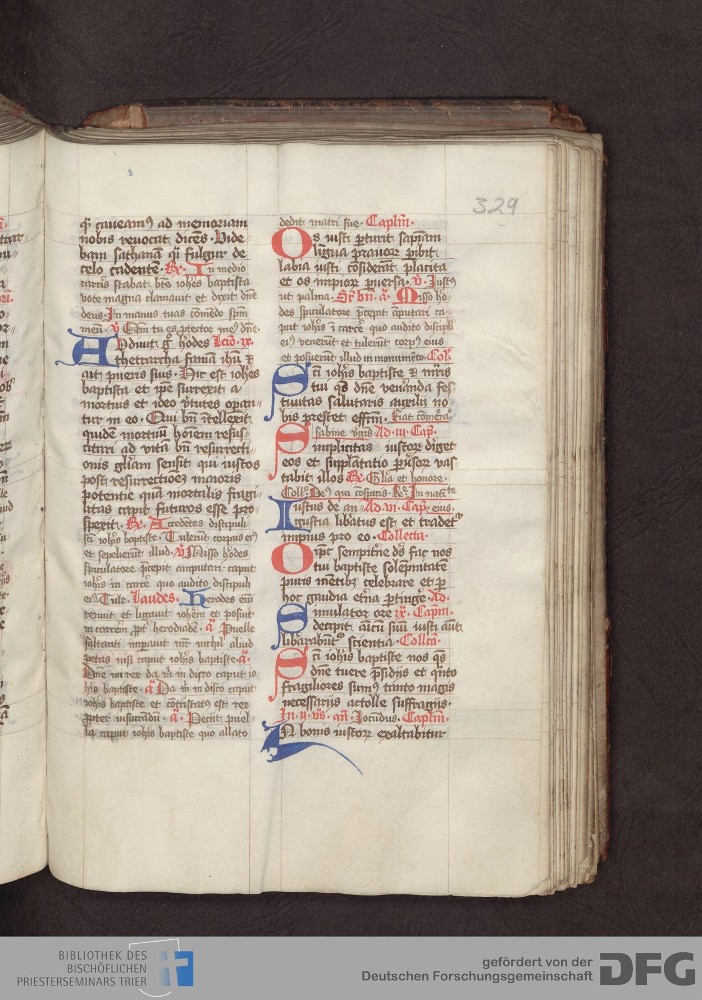 329
q̃ caueam9 ad memoriam
nobis reuocat dicẽs · Vide
bam sathanã q̃i fulgur de
celo cadentẽ · Rx · In medio
carcis stabat btũs ioh̃es baptista
voce magna clamauit et dixit dñe
deus · In manus tuas comẽdo spm̃
meũ · v̾ Cum tu es ptector me9 dñe ·
Audiuit g̊ h̾odes Lcio · ix ·
thetrarcha famã ih̃u et
ait pueris suis · Hic est ioh̃es
baptista et ip̃e surrexit a
mortuis et ideo v̾tutes opan
tur in eo · Qui bñ ĩtellexit
quidẽ mortuũ hoĩem resus
citari ad vitã bñ resurrecti
onis gl̃iam sensit qui iustos
post resurrectionẽ maioris
potentie quã mortalis fragi
litas capit futuros esse pro
spexit · Rx · Accedẽtes discipuli
sc̃i ioh̾is baptiste · Tulerũt corpus ei9
et sepelierũt illud · v̾ Misso h̾odes
spiculatore p̃cepit amputari caput
ioh̾is ĩ carcẽ quo audito discipuli
ei9 · Tule · Laudes · Herodes em̃
tenuit et ligauit ioh̃em et posuit
in carcem ppt̾ herodiadẽ · a᷑ Puelle
saltanti impauit mr̃ nichil aliud
petas nisi caput ioh̾is baptiste · a᷑ ·
Dñe mi rex da m̃ in disco caput io
h̾is baptiste · a᷑ Da m̃ in disco caput
ioh̾is baptiste et cõtristat9 est rex
ppter iusiurãdũ · a᷑ · Petiit puel
la caput ioh̾is baptiste quo allato
dedit matri sue · Caplm̃ ·
Os iusti pturit sapĩam
ligua prauor̾ pibit
labia iusti cõsiderãt placita
et os impior̾ puersa · v̾ · Iust9
ut palma · Sr̃ bñ · a᷑ · Misso h̾o
des spiculatore p̃cepit aputari ca
put ioh̾is ĩ carce quo audito discipli
ei9 venerũt et tulerũt corp9 eius
et posuerũt illud in monumẽto · Col̃ ·
Sc̃i ioh̾is baptiste et mr̃is
tui qs̃ dñe venãnda fes
tiuitas salutaris auxilii no
bis prestet effm̃ · Fiat comẽorac̃
sabine v̾gĩs Ad · iii · Cap̃ ·
Simplicitas iustor̾ diget
eos et supplãtatio p̃usor̾ vas
tabit illos Rx Gl̃ia et honore ·
Coll̃ · De9 qui cõspicis · Re᷑ In natte
Iustus de an · Ad · vi · Cap̃ · eius
gustia libãtus est et tradet᷑
impius pro eo · Collecta ·
Oĩpc̃ sempitrĩe ds̃ fac nos
tui baptiste solẽpnitatẽ
puris mentib9 celebrare et p
hoc gaudia et̾na ptinge᷑ · Ad ·
Simulator̾ ore ix · Cap̃lm ·
decipit amicũ suũ iusti aũt
libãbũnt᷑ scientia · Collcã ·
Sc̃i ioh̾is baptiste nos qs̃
dñe tuere p̃sidiis et q̃nto
fragiliores sum9 tanto magis
necessariis actolle suffragiis ·
In · ii · v̾s · añ · Iocũdus · Caplm̃ ·
In bonis iustor̾ exaltabitur
BIBLIOTHEK DES
BISCHÖFLICHEN
PRIESTERSEMINARS TRIER
gefördert von der
Deutschen Forschungsgemeinschaft
DFG